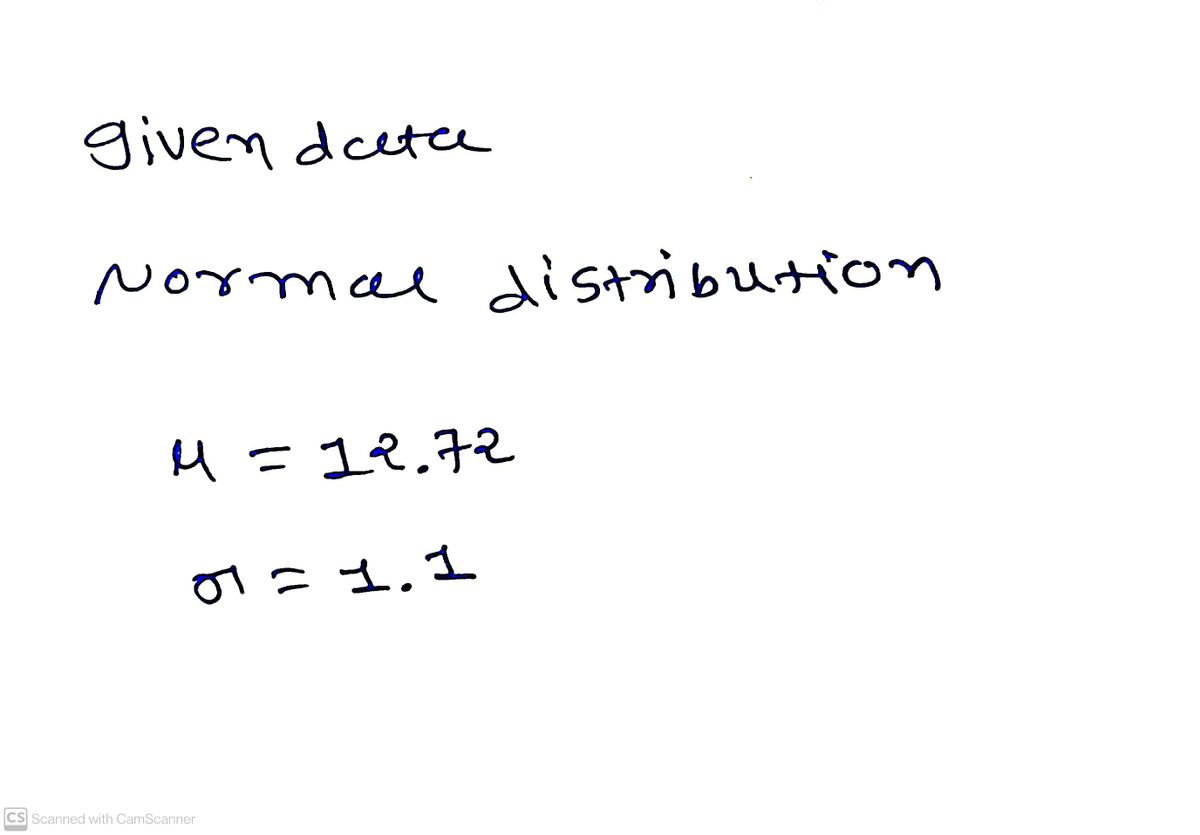 given data
Normal distribution
μ = 12.72
σ = 1.1
CS Scanned with CamScanner